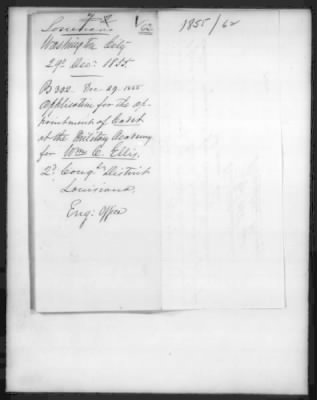 Louisiana V 62
1855/62
Washington City
29. Dec: 1855.
B 302. Dec 29. 1855
Application for the ap-
pointment of Cadet
at the Military Academy
for Wm. C. Ellis.
2d. Congl. District
Louisiana.
Eng: Office